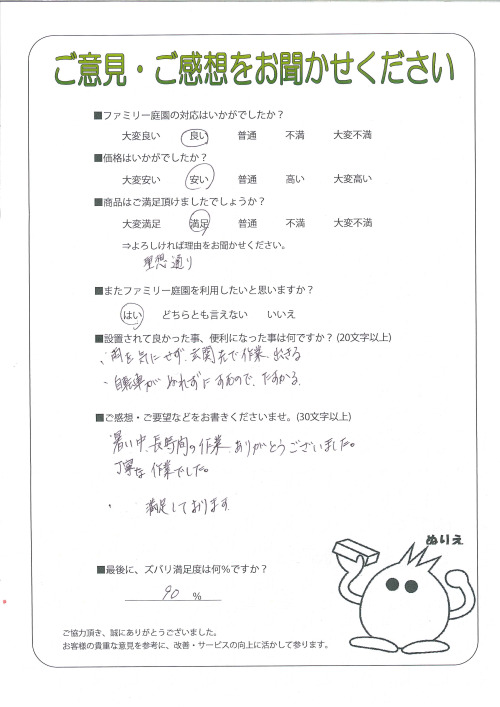 ご意見・ご感想をお聞かせください
■ファミリー庭園の対応はいかがでしたか？
大変良い 良い 普通 不満 大変不満
■価格はいかがでしたか？
大変安い 安い 普通 高い 大変高い
■商品はご満足頂けましたでしょうか？
大変満足 満足 普通 不満 大変不満
⇒よろしければ理由をお聞かせください。
理想通り
■またファミリー庭園を利用したいと思いますか？
はい どちらとも言えない いいえ
■設置されて良かった事、便利になった事は何ですか？(20文字以上)
・雨を気にせず、玄関先で作業出きる
・自転車がぬれずにすむので、たすかる。
■ご感想・ご要望などをお書きくださいませ。(30文字以上)
暑い中、長時間の作業、ありがとうございました。
丁寧な作業でした。
・ 満足しております
ぬりえ
■最後に、ズバリ満足度は何％ですか？
90 ％
ご協力頂き、誠にありがとうございました。
お客様の貴重な意見を参考に、改善・サービスの向上に活かして参ります。